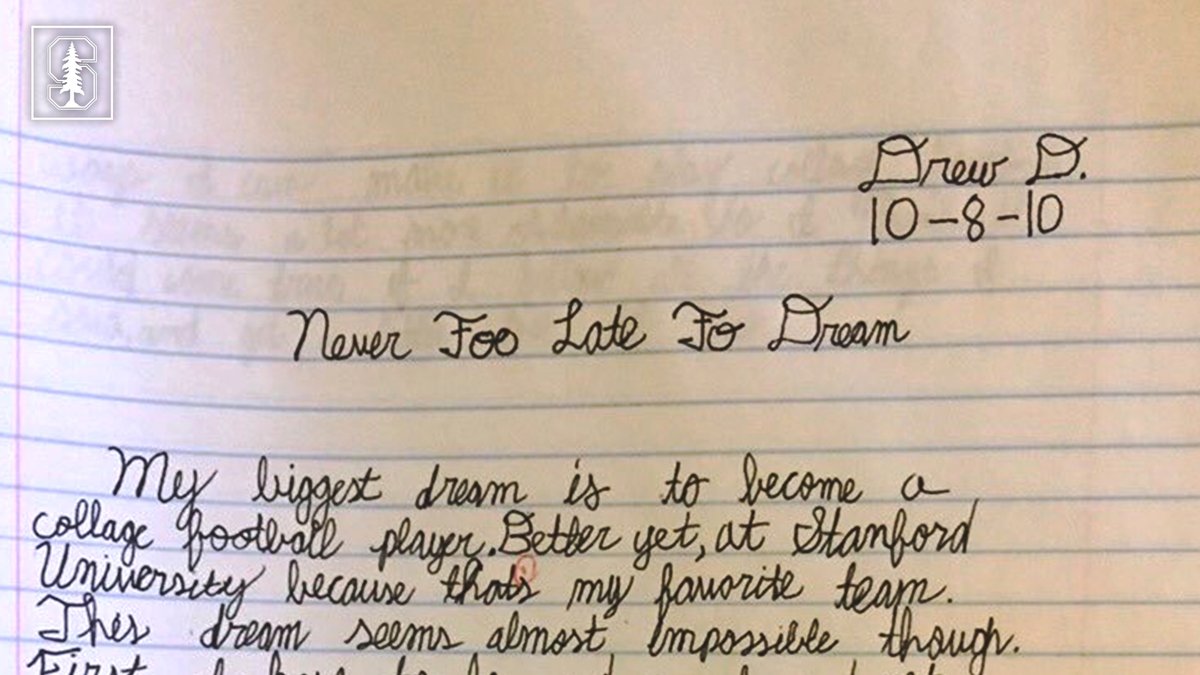 S
Drew D.
10-8-10
Never Too Late To Dream
My biggest dream is to become a
collage football player. Better yet, at Stanford
University because thats my favorite team.
This dream seems almost impossible though.
First